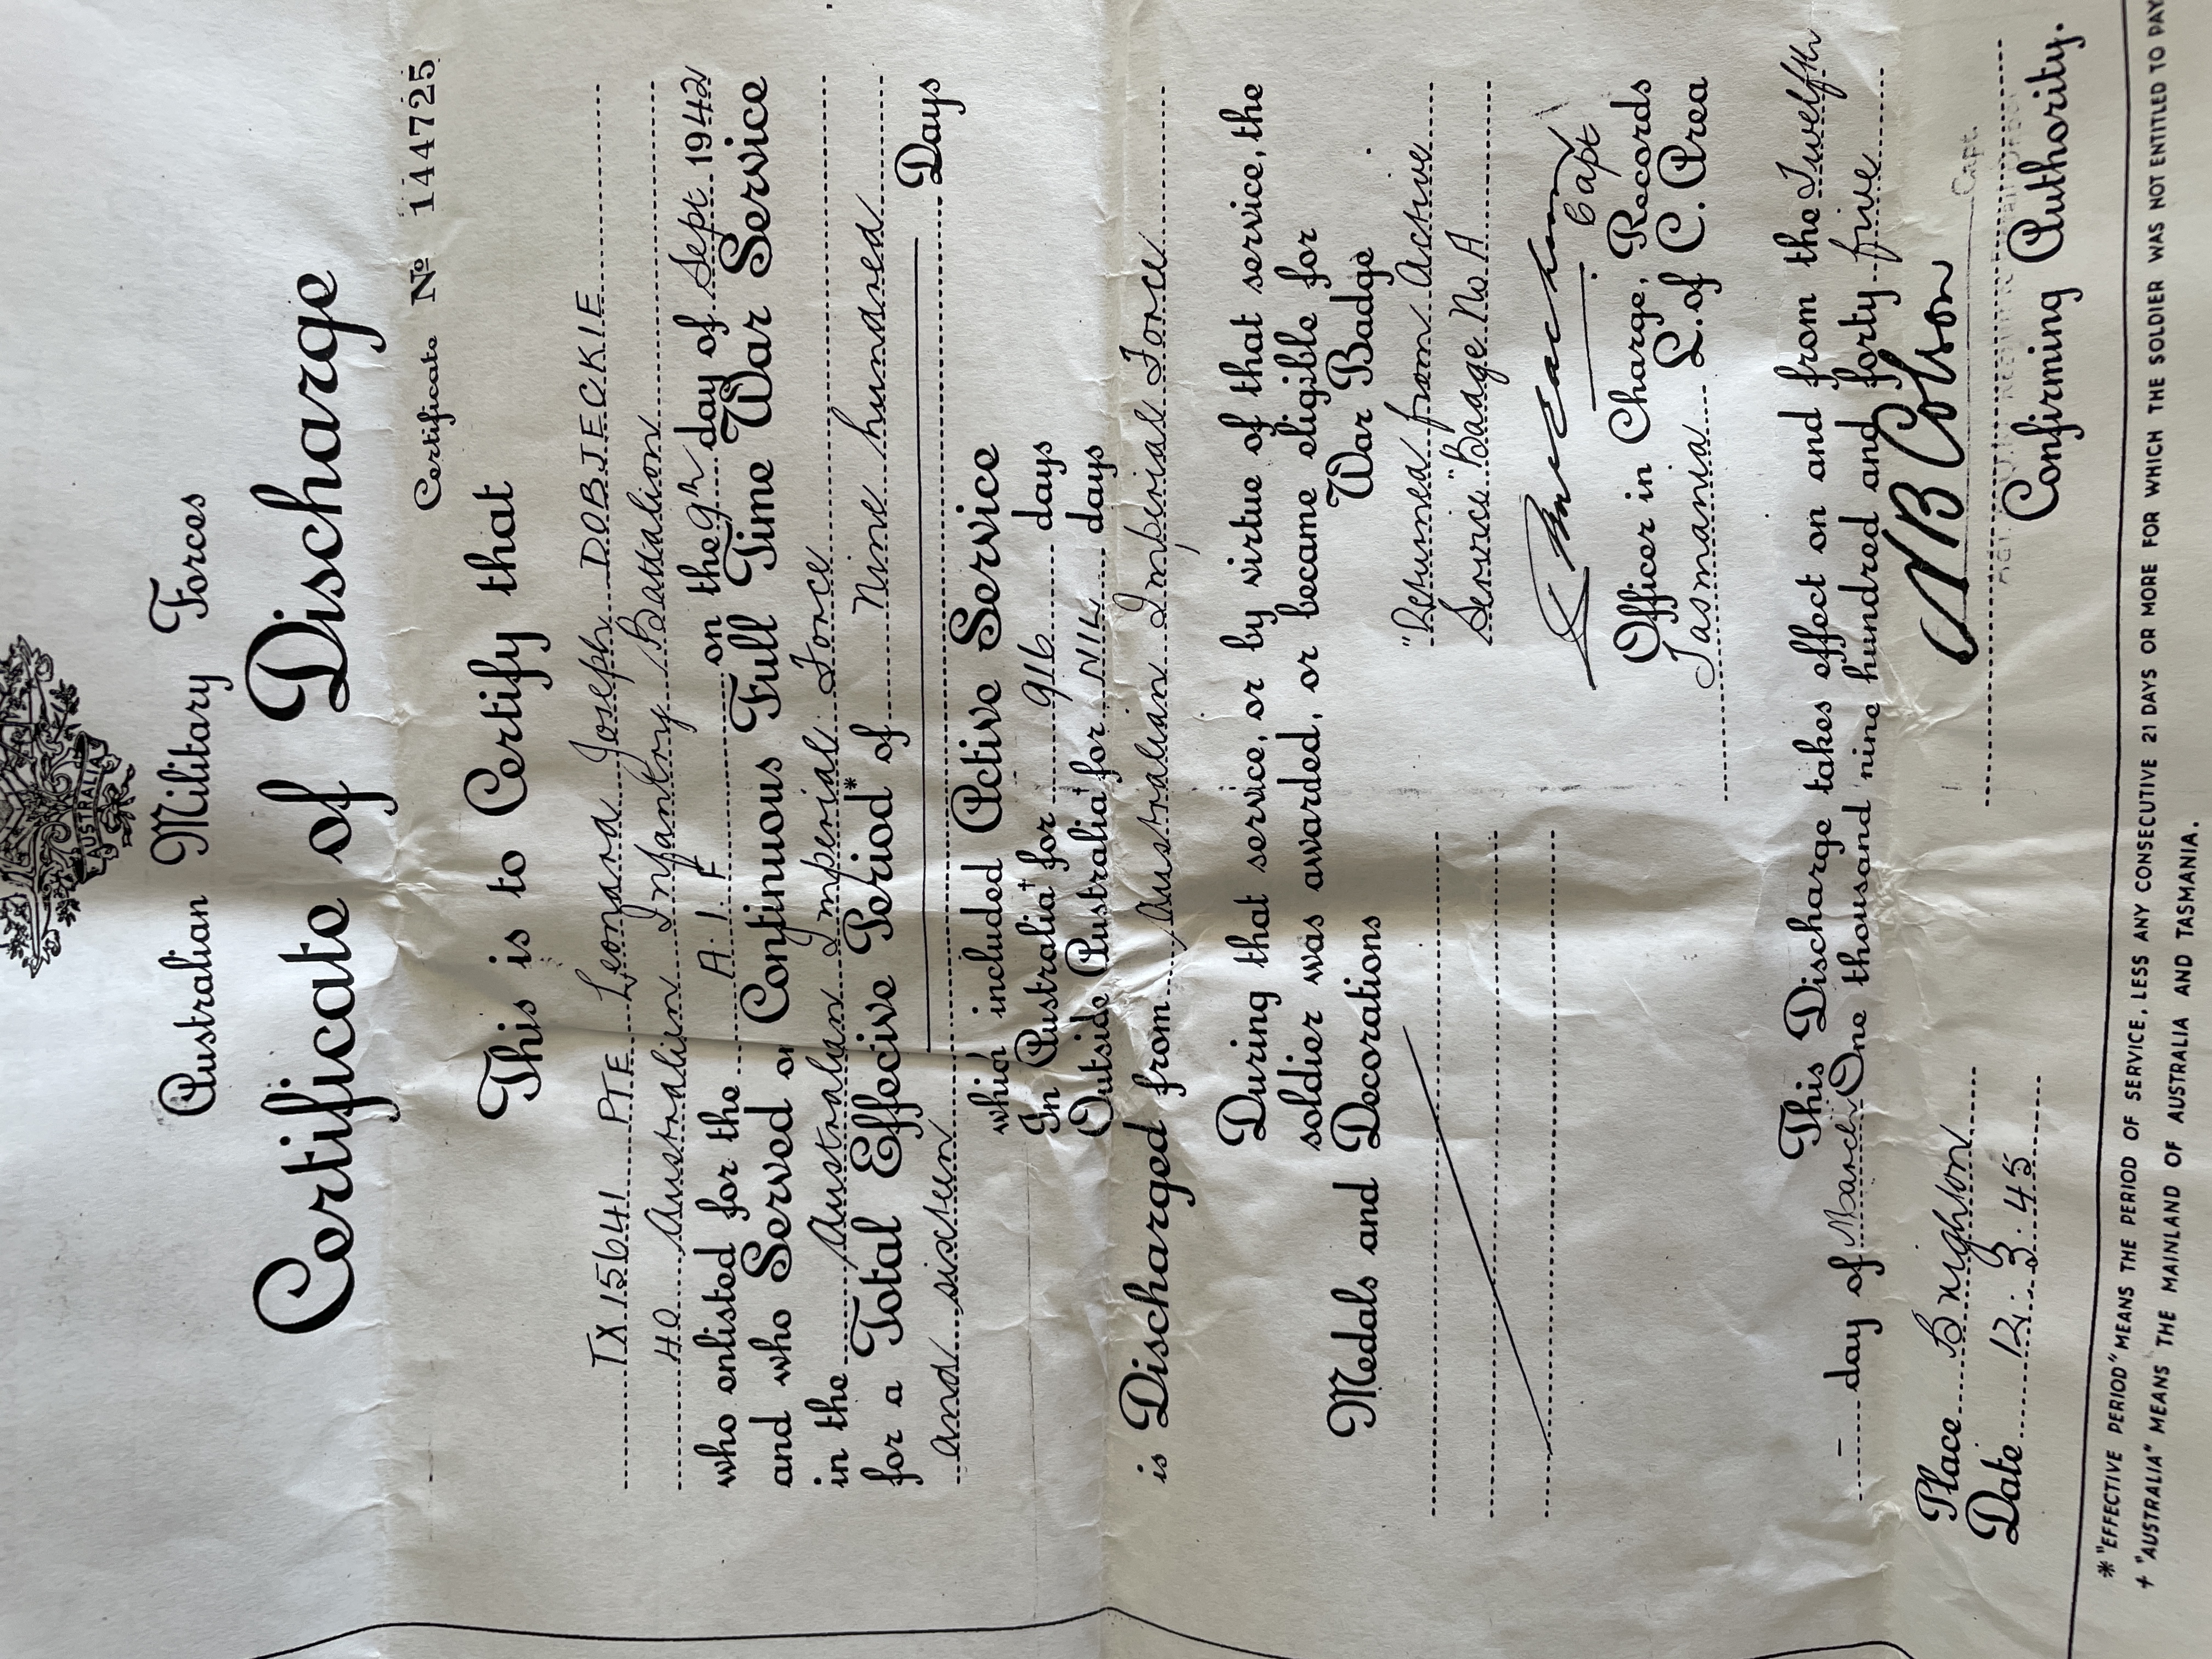 AUSTRALIA
Australian Military Forces
Certificate of Discharge
Certificate No 144725
This is to Certify that
TX 15641 PTE Leonard Joseph DOBJECKIE
40 Australian Infantry Battalion
who enlisted for the A.I.F on the 9th day of Sept. 1942
and who Served on Continuous Full Time War Service
in the Australian Imperial Force
for a Total Effective Period* of Nine hundred
and sixteen Days
which included Active Service
In Australia† for 916 days
Outside Australia† for NIL days
is Discharged from Australian Imperial Force
During that service, or by virtue of that service, the
soldier was awarded, or became eligible for
Medals and Decorations War Badge
"Returned from Active
Service" Badge No A
Capt
Officer in Charge, Records
Tasmania L. of C. Area
This Discharge takes effect on and from the Twelfth
day of March One thousand nine hundred and forty five
Place Brighton
Date 12.3.45
Capt.
Confirming Authority.
* "EFFECTIVE PERIOD" MEANS THE PERIOD OF SERVICE, LESS ANY CONSECUTIVE 21 DAYS OR MORE FOR WHICH THE SOLDIER WAS NOT ENTITLED TO PAY
† "AUSTRALIA" MEANS THE MAINLAND OF AUSTRALIA AND TASMANIA.